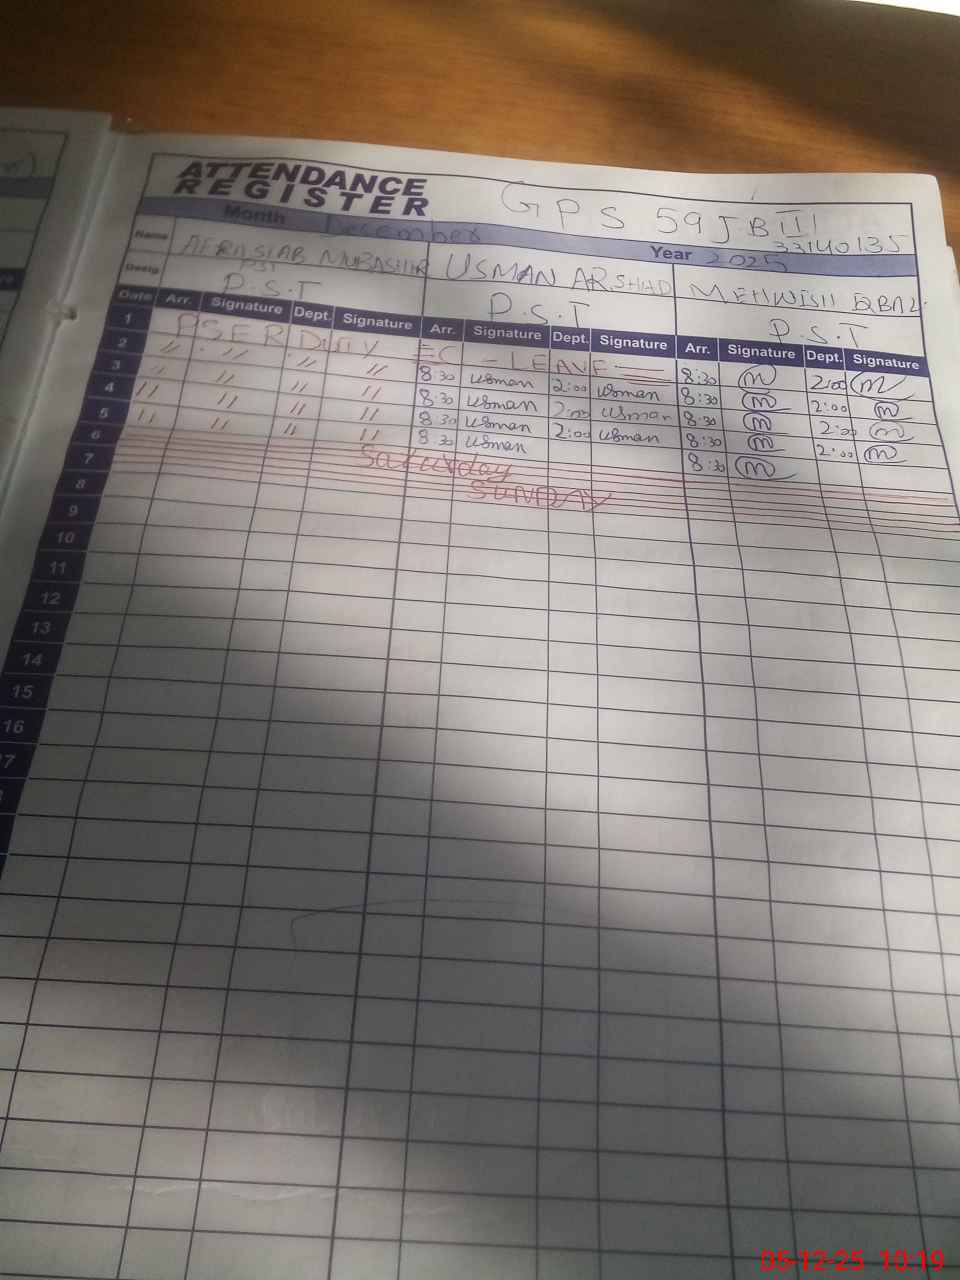 ATTENDANCE
REGISTER
GPS 59 JB III
33140135
Month December Year 2025
Name AFRASIAB MUBASHIR USMAN ARSHAD MEHWISH IQBAL
Desig P.S.T P.S.T P.S.T
Date Arr. Signature Dept. Signature Arr. Signature Dept. Signature Arr. Signature Dept. Signature
1 PSER Duty EC - LEAVE 8:30 m 2:00 m
2 〃 〃 〃 〃 8:30 usman 2:00 usman 8:30 m 2:00 m
3 〃 〃 〃 〃 8:30 usman 2:00 usman 8:30 m 2:00 m
4 〃 〃 〃 〃 8:30 usman 2:00 usman 8:30 m 2:00 m
5 〃 〃 〃 〃 8:30 usman 8:30 m
6 Saturday
7 SUNDAY
8
9
10
11
12
13
14
15
16
7
05-12-25 10:19